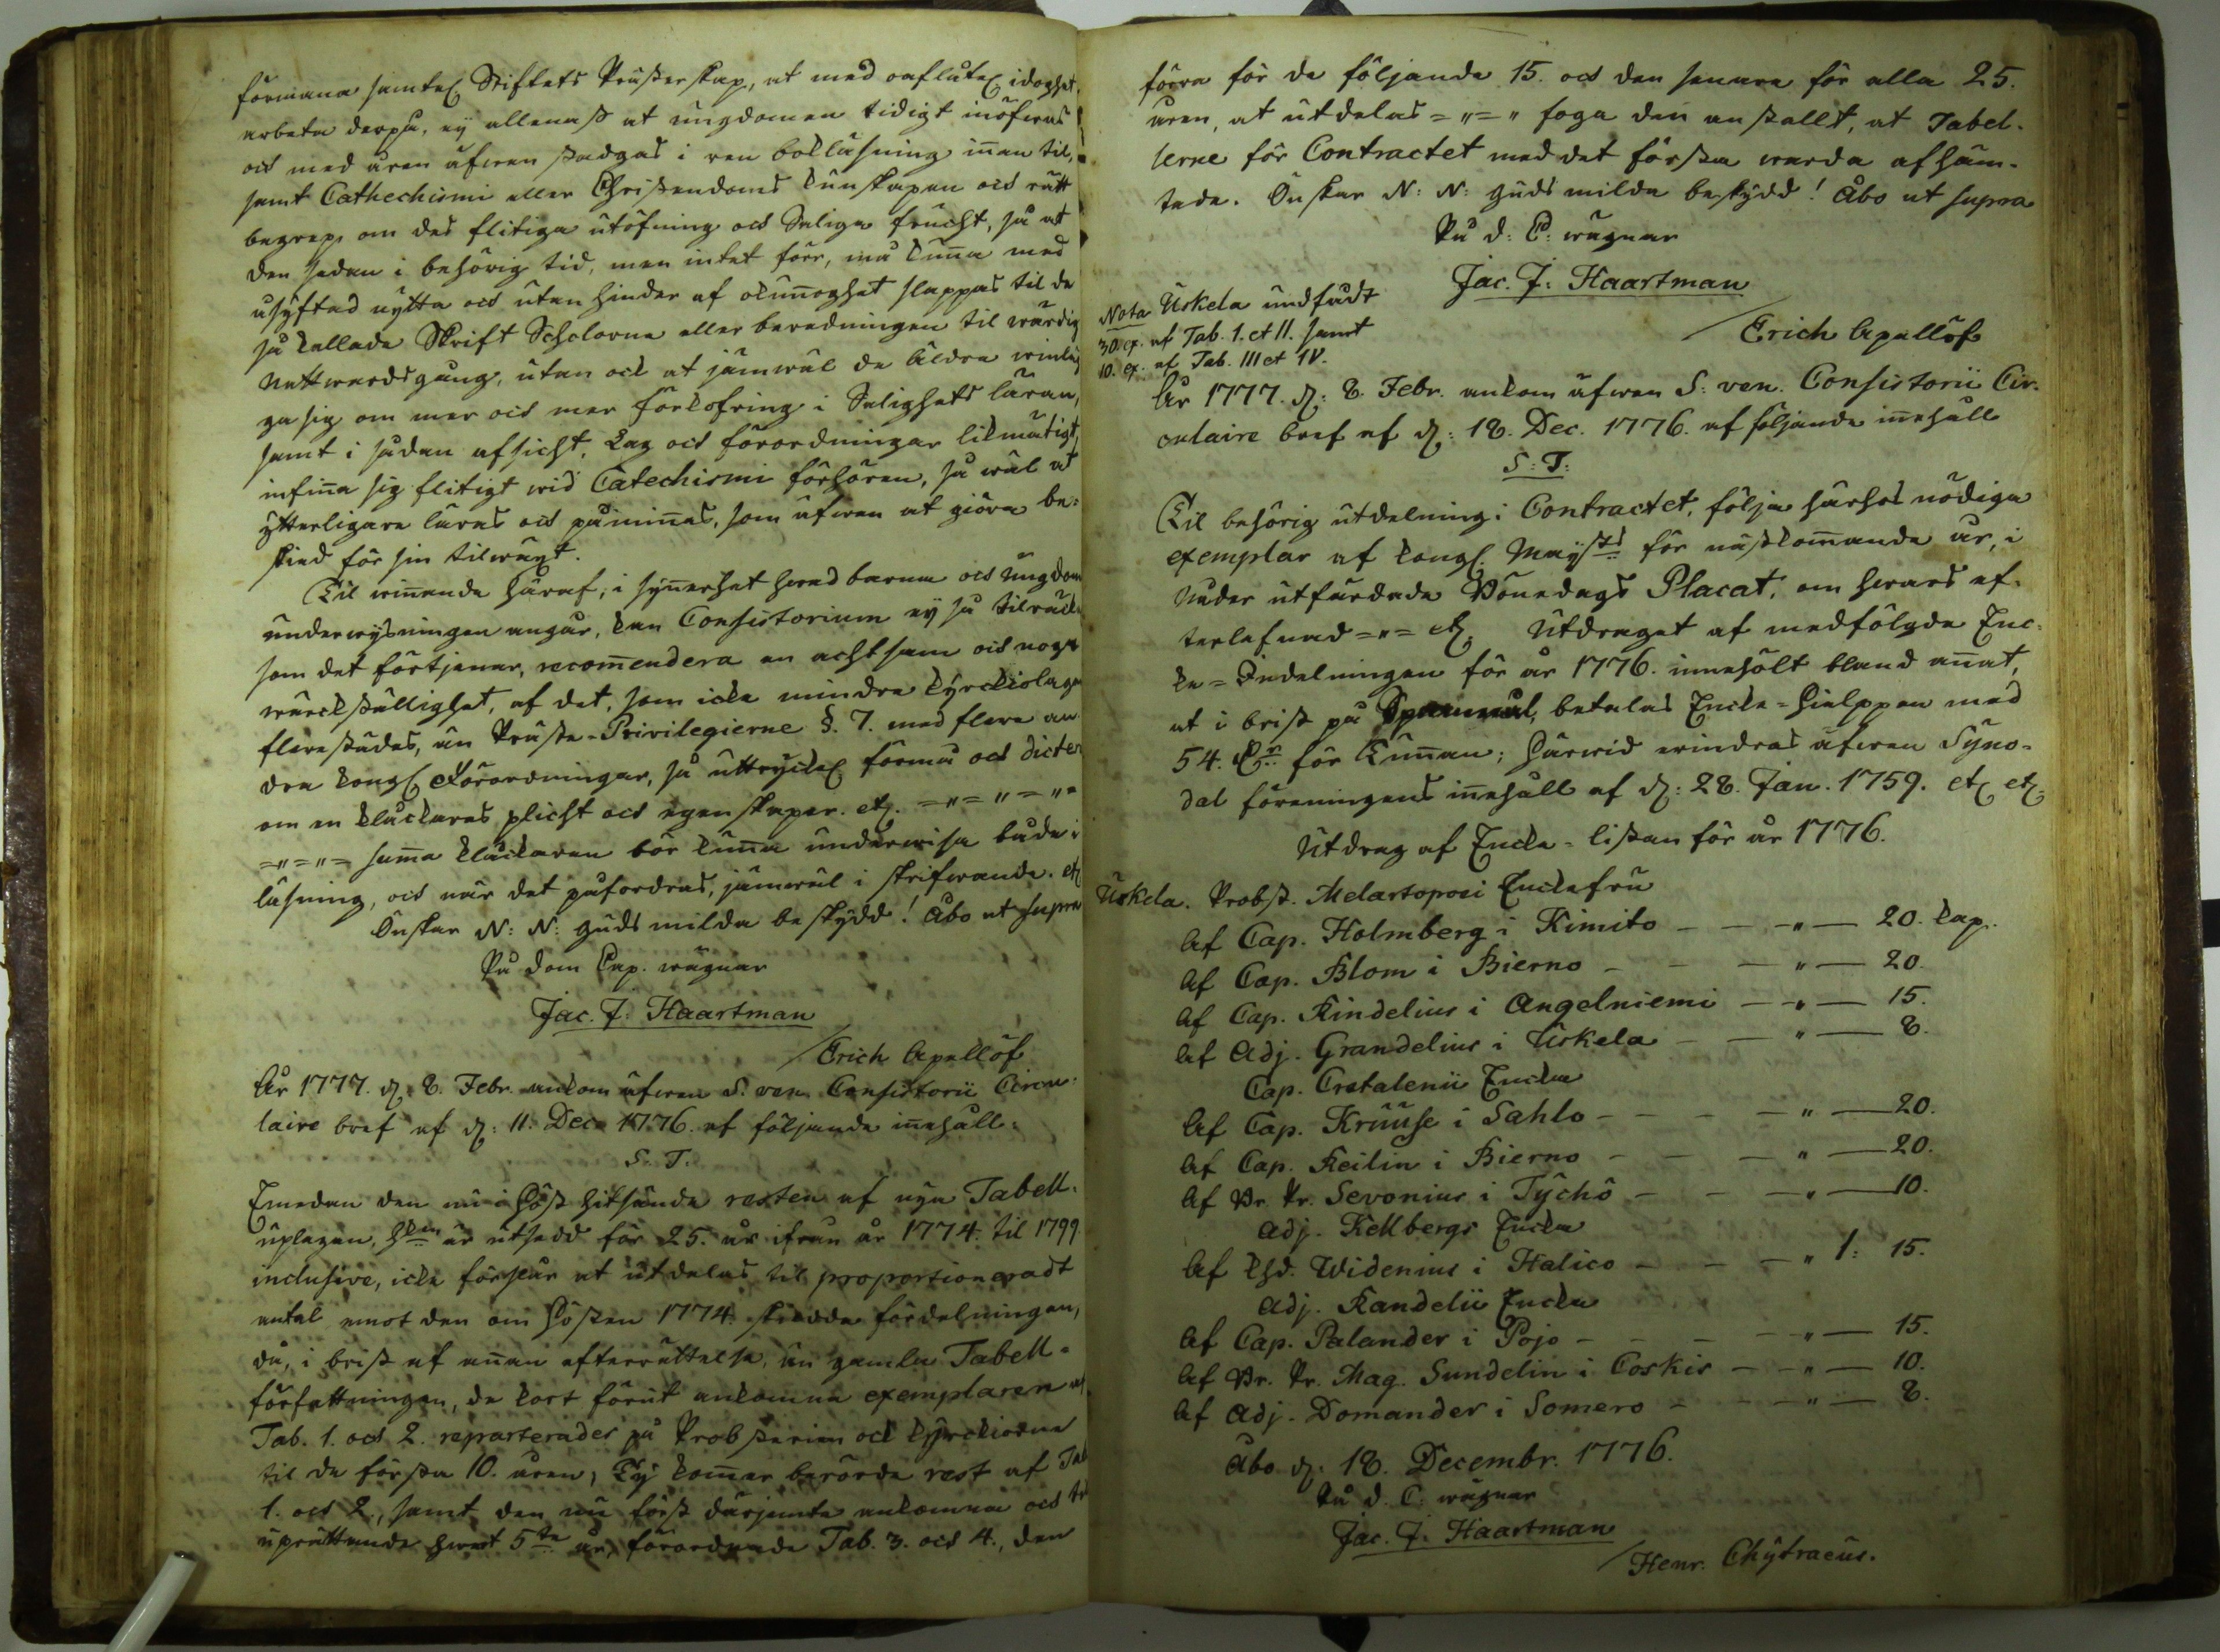 förmana samtel. Stiftets Prästerskap, at med oaflåtel. idoghet,
arbeta derpå, ej allenast at ungdomen tidigt inöfwas
och med åren äfwen stadgas i ren bokläsning innan til,
samt Cathechismi eller Christendoms kunskapen och rätt
begrep om des flitiga utöfning och Saliga frucht, så at
den sedan i behörig tid, men intet förr, må kunna med
åsyftad nytta och utan hinder af okunnoghet släppas til de
så kallade Skrift Scholorne eller beredningen til wärdig
Nattwardsgång, utan ock at jämwäl de Äldre winlägga
sig om mer och mer förkofring i Salighets läran,
samt i sådan afsicht, Lag och förordningar likmätigt,
infinna sig flitigt wid Catechismi förhören, så wäl at
ytterligare läras och påminnas, som äfwen at giöra be-
sked för sin tilwäxt.
Til winnande häraf, i synnerhet hwad barna och ungdoms
underwysningen angår, kan Consistorium ej så tilräckl.
som det förtjenar, recommendera en achtsam och noga
wärckställighet, af det, som icke mindre kyrckiolagen
flerestädes, än Präste-Privilegierne §. 7. med flere an-
dra kongl. Förordningar, så uttryckel. förmå och dictera
om en kluckares plicht och egenskaper. etc. =„=„=„=
=„=„= samma kluckaren bör kunna underwisa både i
läsning, och när det påfordras, jämwäl i skrifwande. etc.
Önskar N: N: Guds milda beskydd! Åbo ut supra
På Dom Cap. wägnar
Jac. J: Haartman
/Erich Apellöf
År 1777. d. 8. Febr. ankom äfwen S. ven. Consistorii Circu-
laire bref af d: 11. Dec. 1776. af följande innehåll:
S. T.
Emedan den nu i höst hitsände resten af nya Tabell-
uplagan, hken är utsedd för 25. år ifrån år 1774. til 1799.
inclusive, icke förslår at utdelas til proportioneradt
antal emot den om hösten 1774. skedde fördelningen,
då, i brist af annan efterrättelse, än gamla Tabell-
författningen, de kort förut ankomne exemplaren af
Tab. 1. och 2. reparterades på Probsterien och kyrckiorne
til de första 10. åren; Ty kommer berörde rest af Tab.
1. och 2., samt den nu först därjemte ankomne och til
uprättande hwart 5te år, förordnade Tab. 3. och 4., den
förra för de följande 15. och den senare för alla 25.
åren, at utdelas =„=„ foga den anstallt, at Tabel-
lerne för Contractet med det första warda afhäm-
tade. Önskar N: N: Guds milda beskydd! Åbo ut supra
På D: C: wägnar
Jac. J: Haartman
/Erich Apellöf
Nota Uskela undfådt
30. ex. af Tab. I. et II. samt
10. ex. af Tab. III et IV.
År 1777. d: 8. Febr. ankom äfwen S: ven. Consistorii Cir-
culaire bref af d: 18. Dec. 1776. af följande innehåll
S: T:
Til behörig utdelning i Contractet, följa härhos nödiga
exemplar af kongl. Maysts för nästkommande år, i
Nåder utfärdade Bönedags Placat, om hwars ef-
terlefnad =„= etc. Utdraget af medfölgde Enc-
ke-Indelningen för år 1776. innehölt bland annat,
at i brist på Spannmål, betalas Encke-hielppen med
54. för Tunnan; härwid erindras äfwen Syno-
dal föreningens innehåll af d: 28. Jan. 1759. etc. etc.
Utdrag af Encke-listan för år 1776.
Uskela. Probst. Melartopoei Enckefru
Af Cap. Holmberg i Kimito — — „ — 20. kap.
Af Cap. Blom i Bierno — — — „ — 20.
Af Cap. Kindelius i Angelniemi — „ — 15.
Af Adj. Grandelius i Uskela — — „ — 8.
Cap. Cretalenii Encka
Af Cap. Krüüse i Sahlo — — — — „ — 20.
Af Cap. Keilin i Bierno — — — „ — 20.
Af Br. Pr. Sevonius i Tychö — — — „ — 10.
Adj. Kellbergs Encka
Af khd. Widenius i Halico — — — „ 1: 15.
Adj. Kandelii Encka
Af Cap. Palander i Pojo — — — — „ — 15.
Af Br. Pr. Mag. Sundelin i Coskis — — „ — 10.
Af Adj. Domander i Somero — — — „ — 8.
Åbo d: 18. Decembr. 1776.
På D. C: wägnar
Jac. J: Haartman
/Henr. Chytraeus.